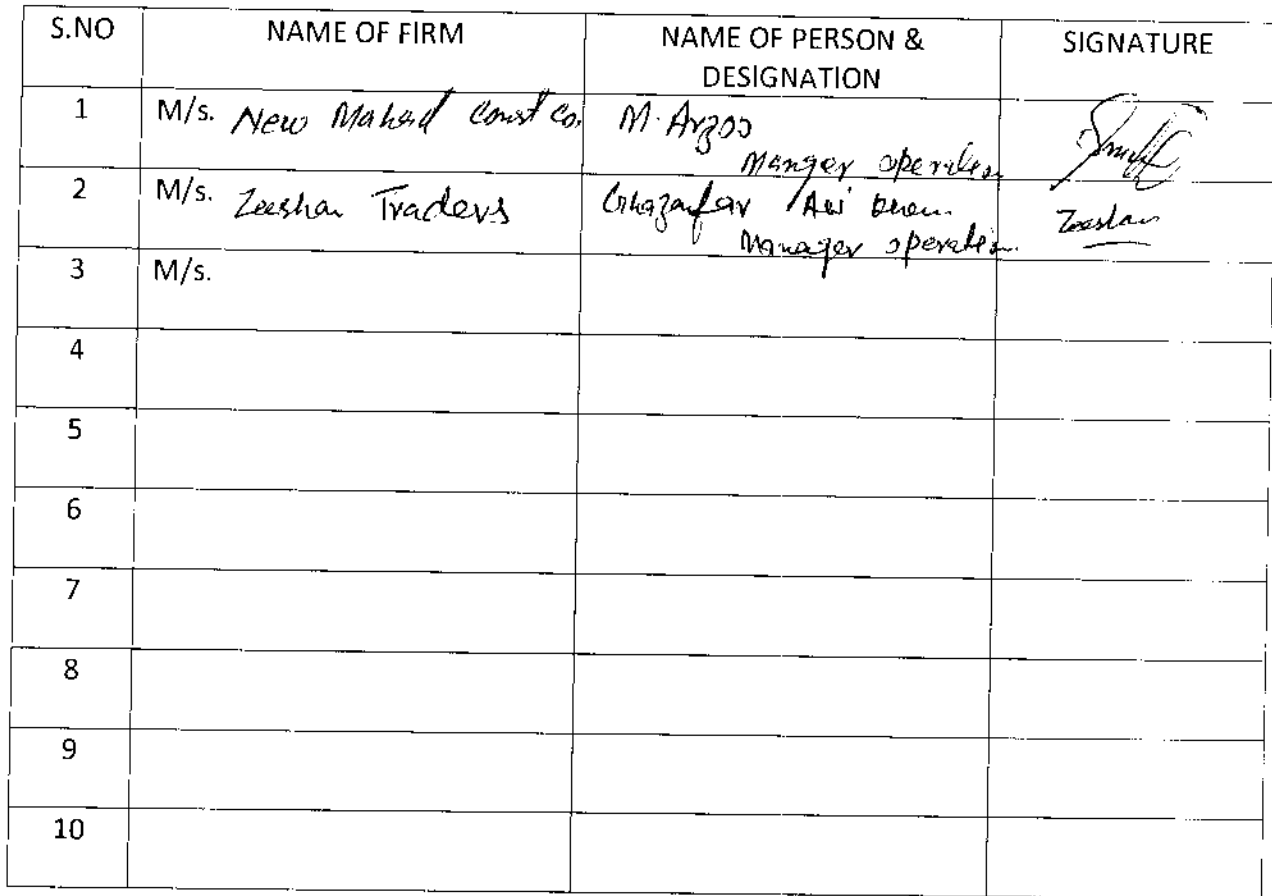 S.NO NAME OF FIRM NAME OF PERSON & DESIGNATION SIGNATURE
1 M/s. New Mahad Const Co. M. Arzoo
Manger operation
2 M/s. Zeeshan Traders Ghazanfar Ali
Manager operation Zeeshan
3 M/s.
4
5
6
7
8
9
10